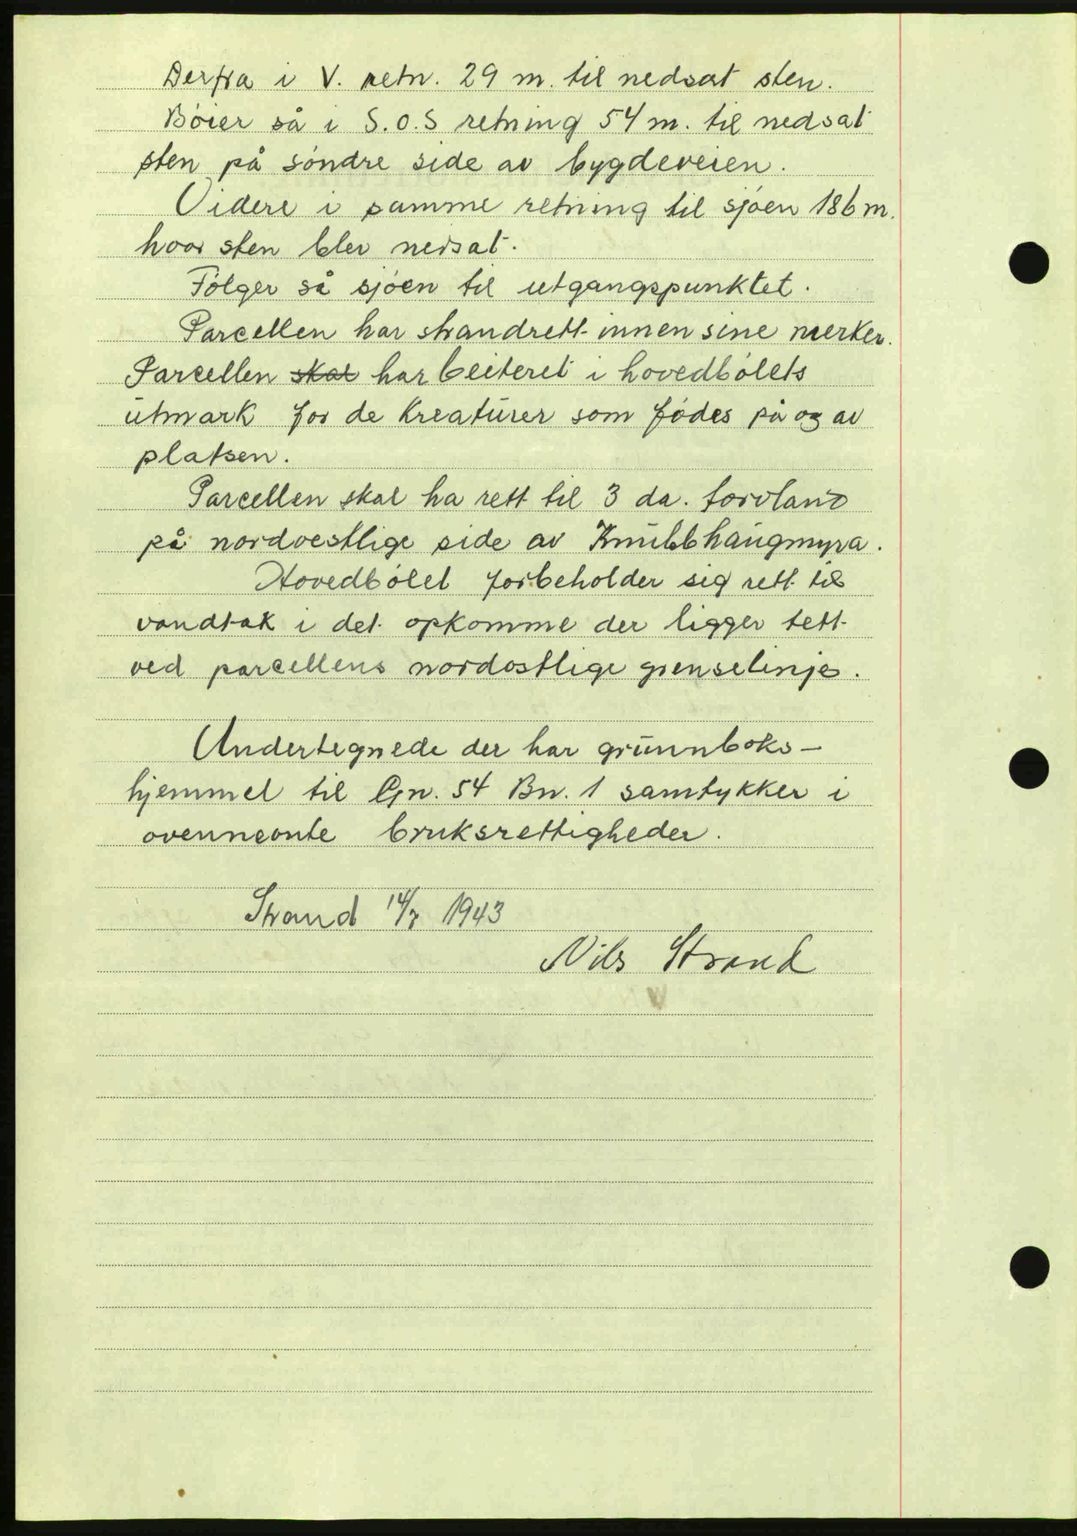 Derfra i V. retn. 29 m. til nedsat sten.
Bóier så i S.O.S retning 54 m. til nedsat
sten på sóndre side av bygdeveien.
Videre i samme retning til sjóen 186 m.
hvor sten blev nedsat.
Fólger så sjóen til utgangspunktet.
Parcellen har strandrett innen sine merker.
Parcellen skal har beiteret i hovedbólets
utmark for de kreaturer som fódes på og av
platsen.
Parcellen skal ha rett til 3 da. torvland
på nordvestlige side av Knubbhaugmyra.
Hovedbólet forbeholder sig rett til
vandtak i det opkomme der ligger tett
ved parcellens nordostlige grenselinje.
Undertegnede der har grunnboks-
hjemmel til Gn. 54 Bn. 1 samtykker i
ovennevnte bruksrettigheder.
Strand 14/7 1943
Nils Strand